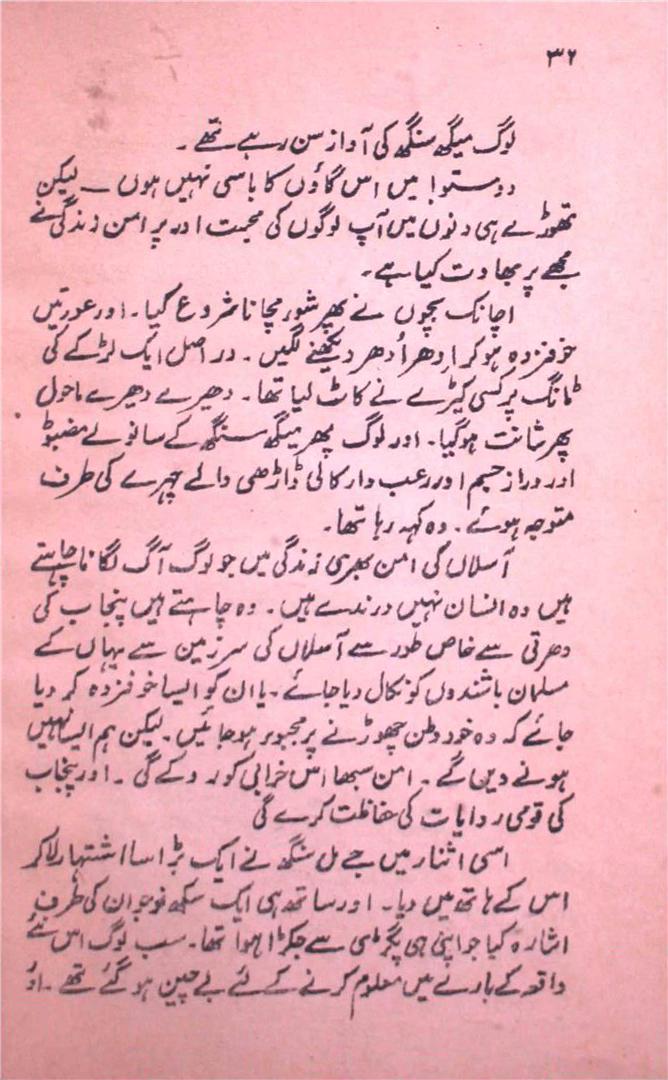 ۳۶
لوگ میگھ سنگھ کی آواز سن رہے تھے ۔
دوستو! میں اس گاؤں کا باسی نہیں ہوں ــ لیکن
تھوڑے ہی دنوں میں آپ لوگوں کی محبت اور پر امن زندگی نے
مجھے پر بھاوت کیا ہے۔
اچانک بچوں نے پھر شور مچانا شروع کیا۔ اور عورتیں
خوفزدہ ہو کر اِدھر اُدھر دیکھنے لگیں ۔ در اصل ایک لڑکے کی
ٹانگ پر کسی کیڑے نے کاٹ لیا تھا۔ دھیرے دھیرے ماحول
پھر شانت ہوگیا۔ اور لوگ پھر میگھ سنگھ کے سانولے مضبوط
اور دراز جسم اور رعب دار کالی ڈاڑھی والے چہرے کی طرف
متوجہ ہوئے ۔ وہ کہہ رہا تھا۔
آسلاں کی امن بھری زندگی میں جو لوگ آگ لگانا چاہتے
ہیں وہ انسان نہیں درندے ہیں ۔ وہ چاہتے ہیں پنجاب کی
دھرتی سے خاص طور سے آسلاں کی سرزمین سے یہاں کے
مسلمان باشندوں کو نکال دیا جائے ۔ یا ان کو ایسا خوفزدہ کر دیا
جائے کہ وہ خود وطن چھوڑنے پر مجبور ہو جائیں ۔ لیکن ہم ایسا نہیں
ہونے دیں گے ۔ امن سبھا اس خرابی کو روکے گی ۔ اور پنجاب
کی قومی روایات کی حفاظت کرے گی
اسی اثنار میں جے مل سنگھ نے ایک بڑا سا اشتہار لا کر
اس کے ہاتھ میں دیا۔ اور ساتھ ہی ایک سکھ نوجوان کی طرف
اشارہ کیا جو اپنی ہی پگڑی سے جکڑا ہوا تھا۔ سب لوگ اس نئے
واقعہ کے بارے میں معلوم کرنے کے لئے بے چین ہو گئے تھے ۔ اور